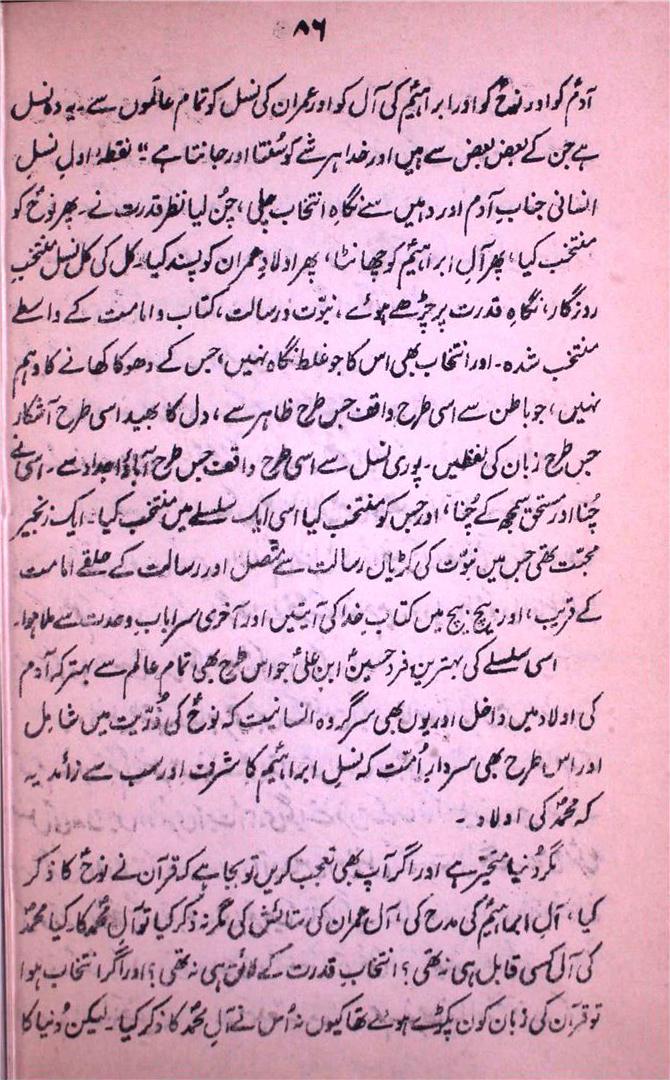 ۸۶
آدمؑ کو اور نوحؑ کو اور ابراہیمؑ کی آل کو اور عمران کی نسل کو تمام عالموں سے۔ یہ وہ نسل
ہے جن کے بعض بعض سے ہیں اور خدا ہر شے کو سُنتا اور جانتا ہے"۔ نقطۂ اول نسلِ
انسانی جناب آدم اور وہیں سے نگاہِ انتخاب چلی، چُن لیا نظر قدرت نے۔ پھر نوحؑ کو
منتخب کیا، پھر آلِ ابراہیمؑ کو چھانٹا، پھر اولادِ عمران کو پسند کیا۔ کل کی کل نسل منتخب
روزگار، نگاہِ قدرت پر چڑھے ہوئے، نبوّت و رسالت، کتاب و امامت کے واسطے
منتخب شدہ۔ اور انتخاب بھی اس کا جو غلط نگاہ نہیں، جس کے دھوکا کھانے کا وہم
نہیں، جو باطن سے اسی طرح واقف جس طرح ظاہر سے، دل کا بھید اسی طرح آشکار
جس طرح زبان کی لفظیں۔ پوری نسل سے اسی طرح واقف جس طرح آباؤ اجداد سے۔ اسی نے
چُنا اور مستحق سمجھ کے چُنا، اور جس کو منتخب کیا اسی ایک سلسلے میں منتخب کیا۔ ایک زنجیر
محبّت تھی جس میں نبوّت کی کڑیاں رسالت سے متصل اور رسالت کے حلقے امامت
کے قریب، اور بیچ بیچ میں کتابِ خدا کی آیتیں اور آخری سرا بابِ وحدت سے ملا ہوا۔
اسی سلسلے کی بہترین فرد حسینؑ ابن علیؑ جو اس طرح بھی تمام عالم سے بہتر کہ آدم
کی اولاد میں داخل اور یوں بھی سرگروہ انسانیت کہ نوحؑ کی ذُرّیت میں شامل
اور اس طرح بھی سردارِ اُمّت کہ نسلِ ابراہیمؑ کا شرف اور سب سے زائد یہ
کہ محمدؐ کی اولاد۔
مگر دُنیا متحیّر ہے اور اگر آپ بھی تعجب کریں تو بجا ہے کہ قرآن نے نوحؑ کا ذکر
کیا، آلِ ابراہیمؑ کی مدح کی، آل عمران کی ستائش کی مگر نہ ذکر کیا تو آلِ محمدؐ کا۔ کیا محمدؐ
کی آل کسی قابل ہی نہ تھی؟ انتخابِ قدرت کے لائق ہی نہ تھی؟ اور اگر انتخاب ہوا
تو قرآن کی زبان کون پکڑے ہوئے تھا کیوں نہ اُس نے آلِ محمدؐ کا ذکر کیا۔ لیکن دُنیا کا